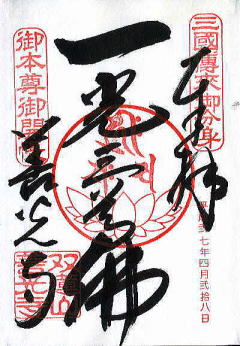 三國傳來御分身
奉拝
七年四月弐拾八日
一光三尊佛
御本尊御開
善光寺